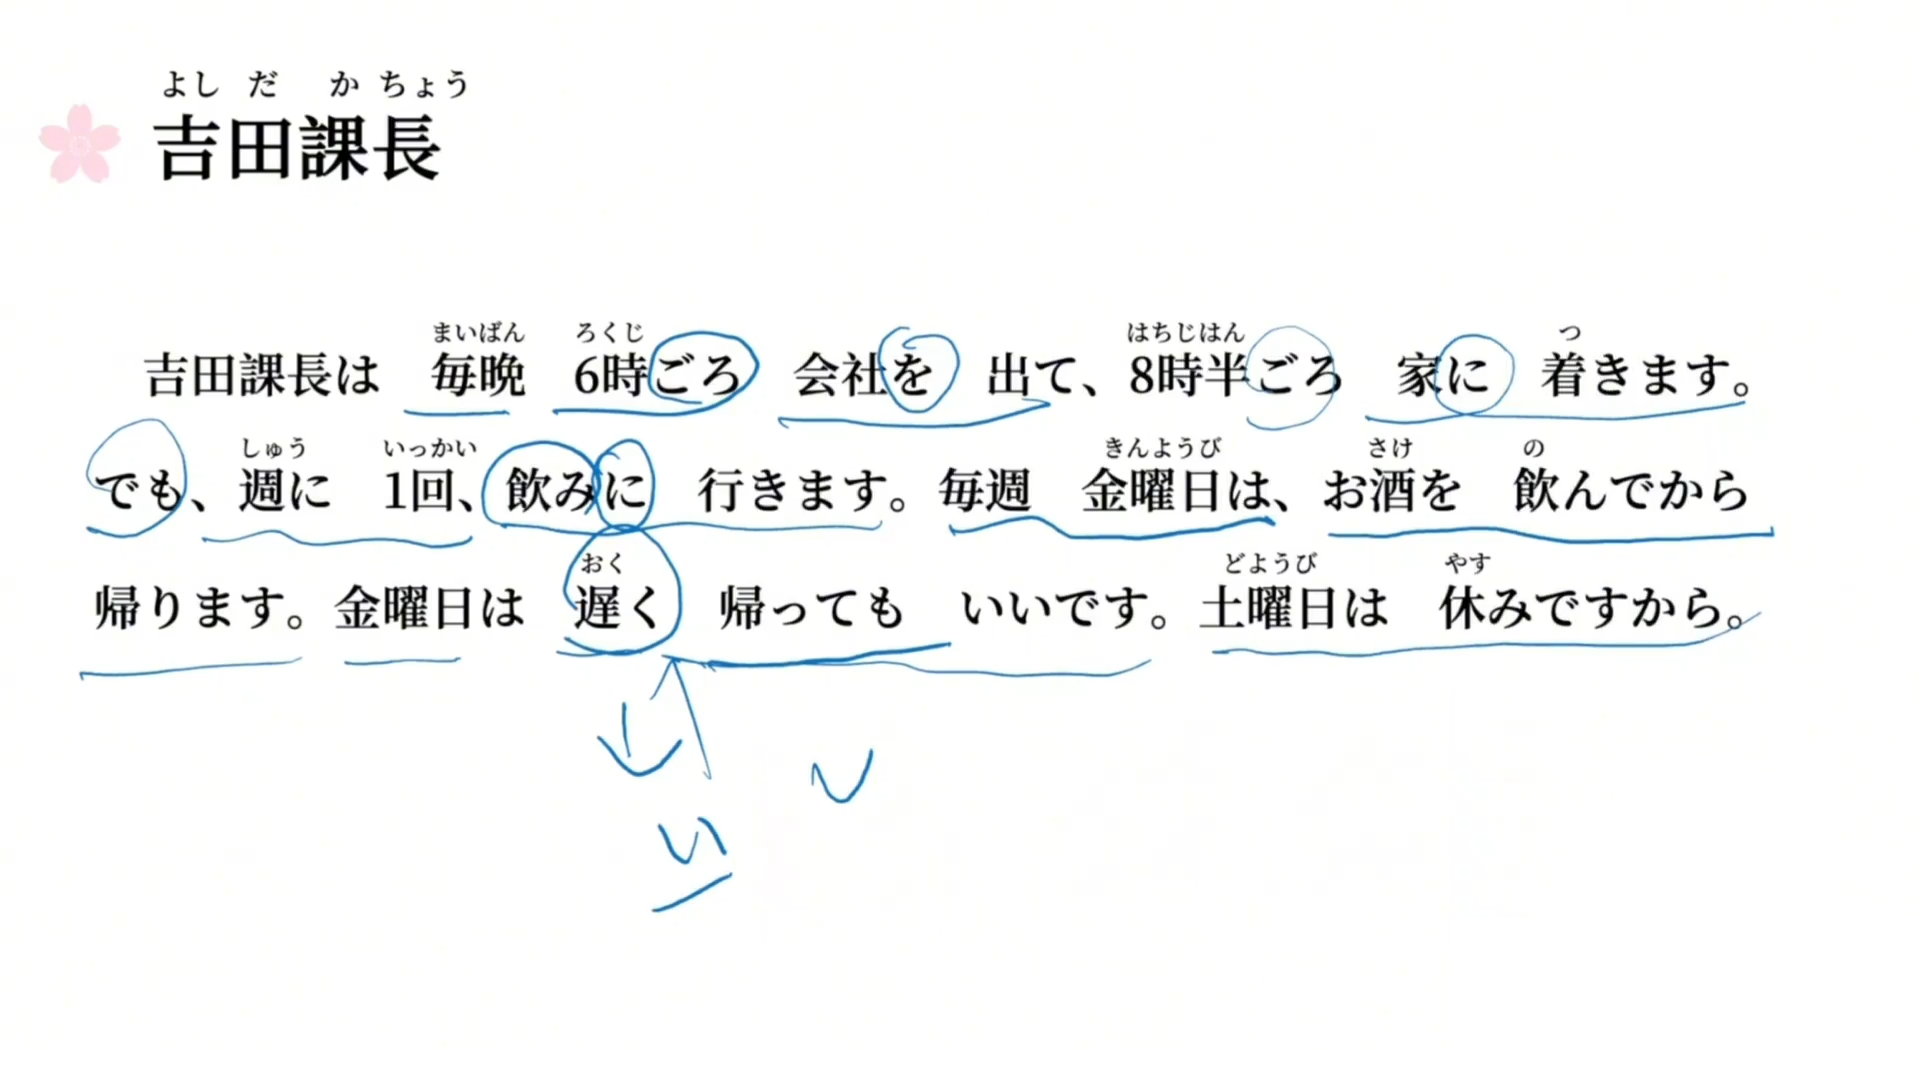 よしだ かちょう
吉田課長
まいばん ろくじ はちじはん つ
吉田課長は 毎晩 6時ごろ 会社を 出て、8時半ごろ 家に 着きます。
しゅう いっかい きんようび さけ の
でも、週に 1回、飲みに 行きます。毎週 金曜日は、お酒を 飲んでから
おく どようび やす
帰ります。金曜日は 遅く 帰っても いいです。土曜日は 休みですから。
い